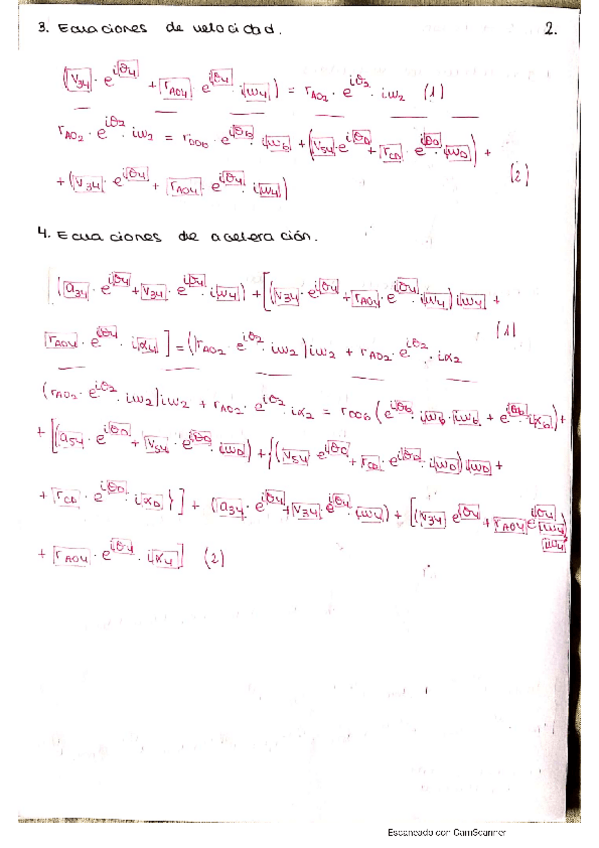 3. Ecuaciones de velocidad. 2.
(V34 · e^iθ4 + rAO4 · e^iθ4 · iω4) = rAO2 · e^iθ2 · iω2 (1)
rAO2 · e^iθ2 · iω2 = rDO6 · e^iθ6 · iω6 + (V54 · e^iθD + rCD · e^iθD · iωD) +
+ (V34 · e^iθ4 + rAO4 · e^iθ4 · iω4) (2)
4. Ecuaciones de aceleración.
(a34 · e^iθ4 + V34 · e^iθ4 · iω4) + [(V34 · e^iθ4 + rAO4 · e^iθ4 · iω4) iω4 +
rAO4 · e^iθ4 · iα4] = (rAO2 · e^iθ2 · iω2) iω2 + rAO2 · e^iθ2 · iα2 (1)
(rAO2 · e^iθ2 · iω2) iω2 + rAO2 · e^iθ2 · iα2 = rDO6 (e^iθ6 · iω6 · iω6 + e^iθ6 · iα6) +
+ [(a54 · e^iθD + V54 · e^iθD · iωD) + {(V54 e^iθD + rCD · e^iθD · iωD) iωD +
+ rCD · e^iθD · iαD}] + (a34 · e^iθ4 + V34 · e^iθ4 · iω4) + [(V34 e^iθ4 + rAO4 e^iθ4 iω4) iω4
+ rAO4 · e^iθ4 · iα4] (2)
Escaneado con CamScanner